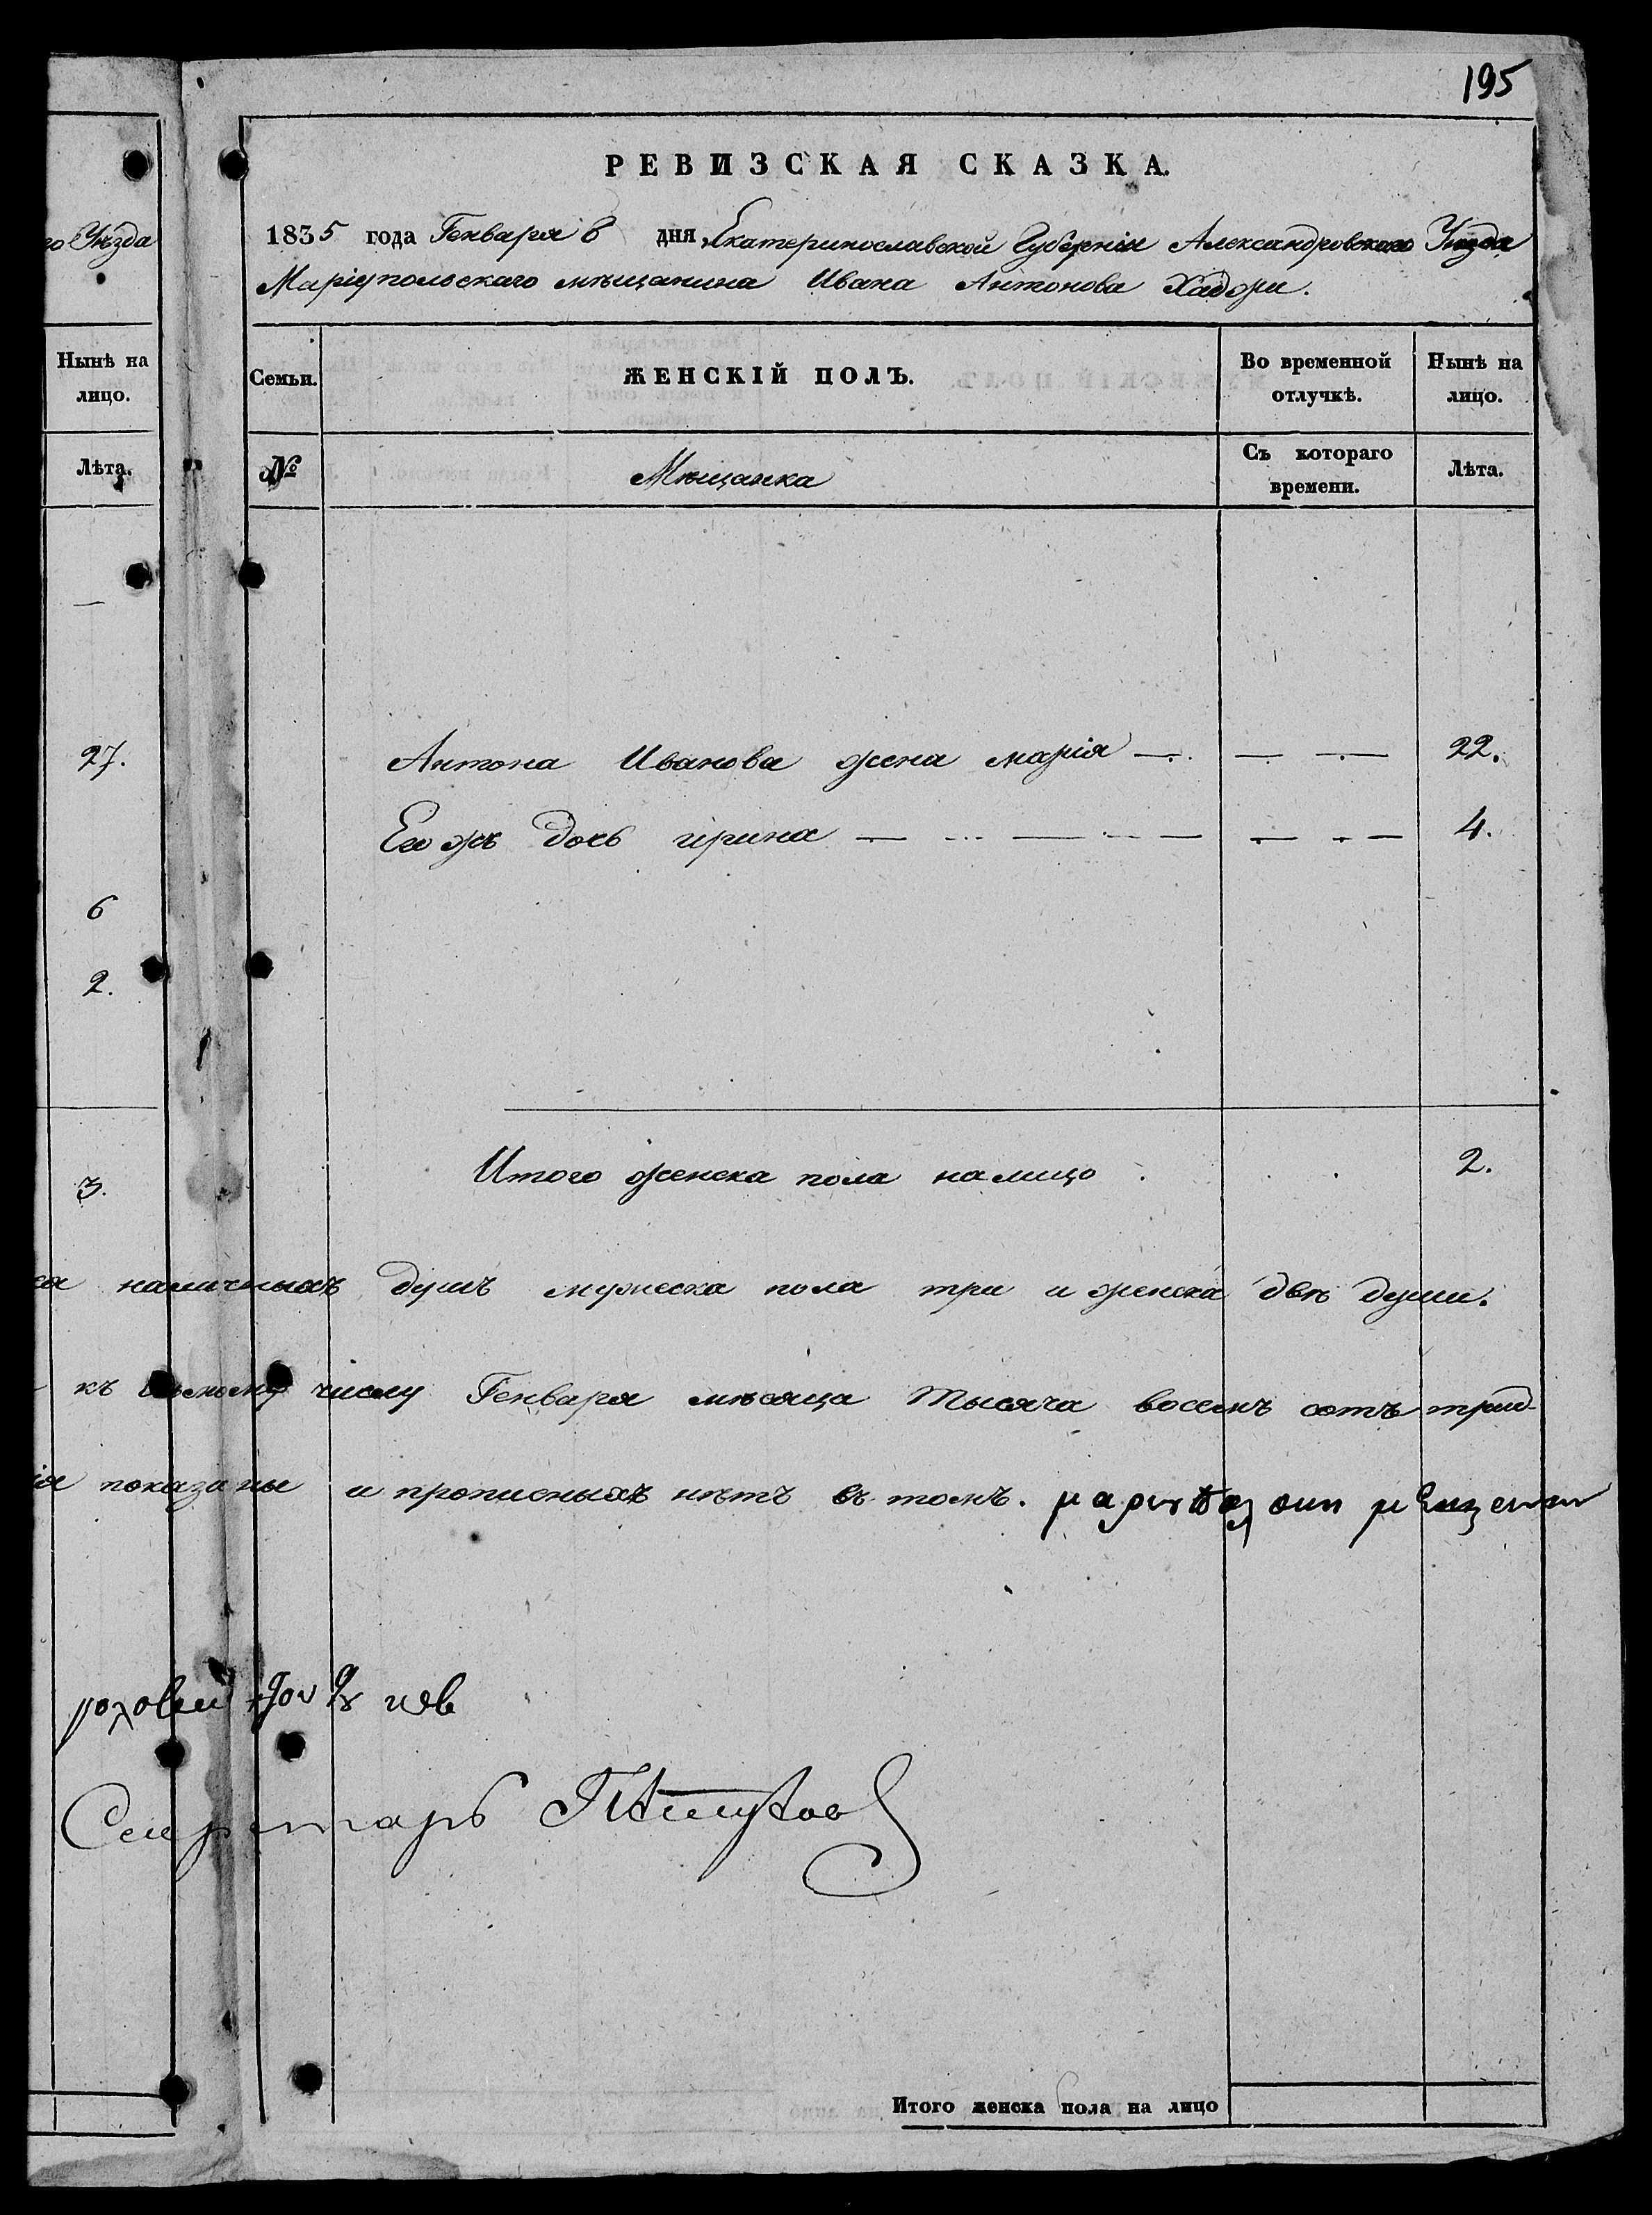 195
РЕВИЗСКАЯ СКАЗКА.
го Уѣзда
1835 года Генваря 8 дня, Екатеринославской Губерніи Александровского Уѣзда
Маріупольскаго мѣщанина Ивана Антонова Хаджи.
Нынѣ на лицо.
Семьи.
ЖЕНСКІЙ ПОЛЪ.
Во временной отлучкѣ.
Нынѣ на лицо.
Лѣта.
№
Мѣщанка
Съ котораго времени.
Лѣта.
27.
Антона Иванова жена марія 22.
Его жъ дочь ирина 4.
6
2.
3.
Итого женска пола на лицо 2.
наличныхъ душъ мужеска пола три и женска двѣ души.
къ числу Генваря мѣсяца тысяча восемъ сотъ трид-
показаны и прописныхъ нѣтъ въ томъ.
Секретарь
Итого женска пола на лицо